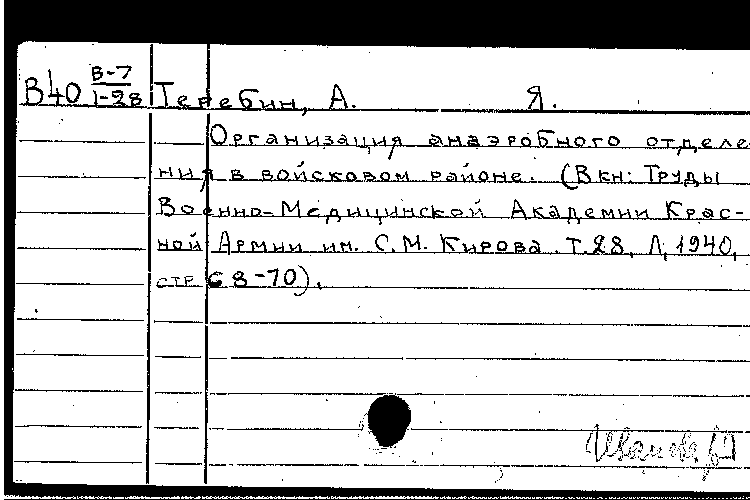 В40 В-7/1-28 Теребин, А. Я.
Организация анаэробного отделе
ния в войсковом районе. (В кн: Труды
Военно-Медицинской Академии Крас-
ной Армии им. С.М. Кирова. Т.28, Л, 1940,
стр 68-70).